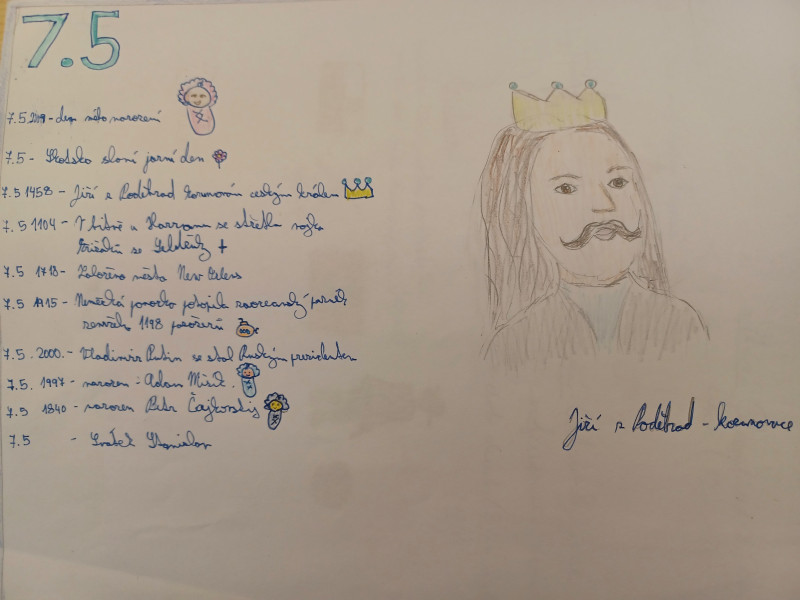 7.5
7.5 - den mého narození
7.5 - Skotsko slaví jarní den
7.5 1458 - Jiří z Poděbrad korunován českým králem
7.5 1104 - V bitvě u Harranu se střetla vojska
křižáků se Seldžuky
7.5 1718 - Založeno města New Orleans
7.5 1915 - Německá ponorka potopila zaoceánský parník
zemřelo 1198 pasažérů
7.5. 2000. - Vladimir Putin se stal Ruským prezidentem
7.5. 1997 - narozen - Adam Mišík.
7.5 1840 - narozen Petr Čajkovskij
7.5 - Svátek Stanislav
Jiří z Poděbrad - korunovace